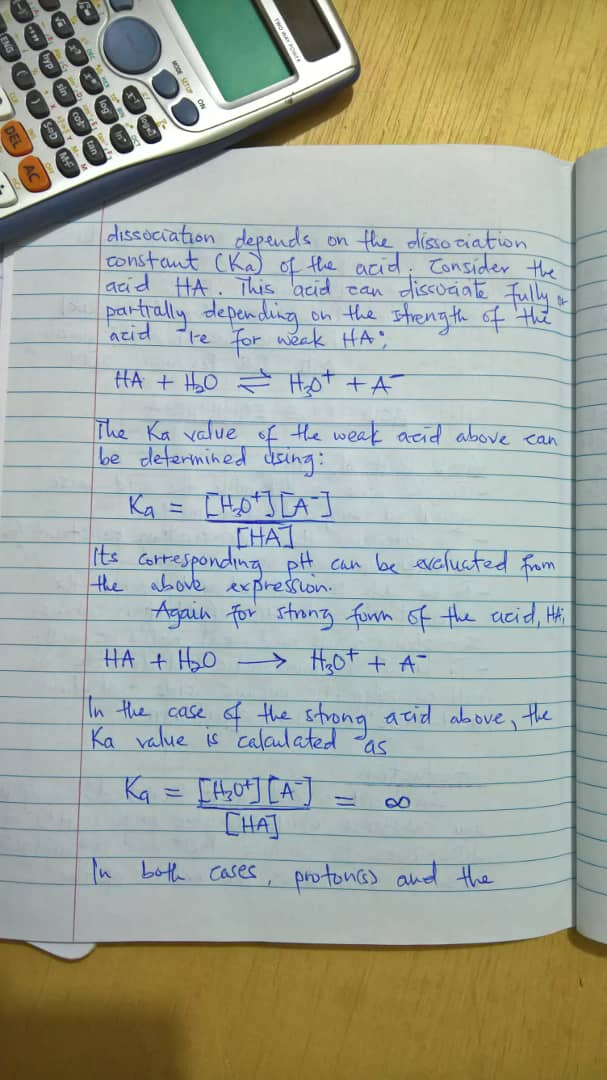 TWO WAY POWER
MODE SETUP
ON
ENG
hyp
sin
cos
tan
log
ln
S⇔D
M+
DEL
AC
dissociation depends on the dissociation
constant (Ka) of the acid. Consider the
acid HA. This acid can dissociate fully or
partially depending on the strength of the
acid ie for weak HA;
HA + H₂O ⇌ H₃O⁺ + A⁻
The Ka value of the weak acid above can
be determined using:
Ka = [H₃O⁺][A⁻]
[HA]
Its corresponding pH can be evaluated from
the above expression.
Again for strong form of the acid, HA;
HA + H₂O → H₃O⁺ + A⁻
In the case of the strong acid above, the
Ka value is calculated as
Ka = [H₃O⁺][A⁻] = ∞
[HA]
In both cases, proton(s) and the